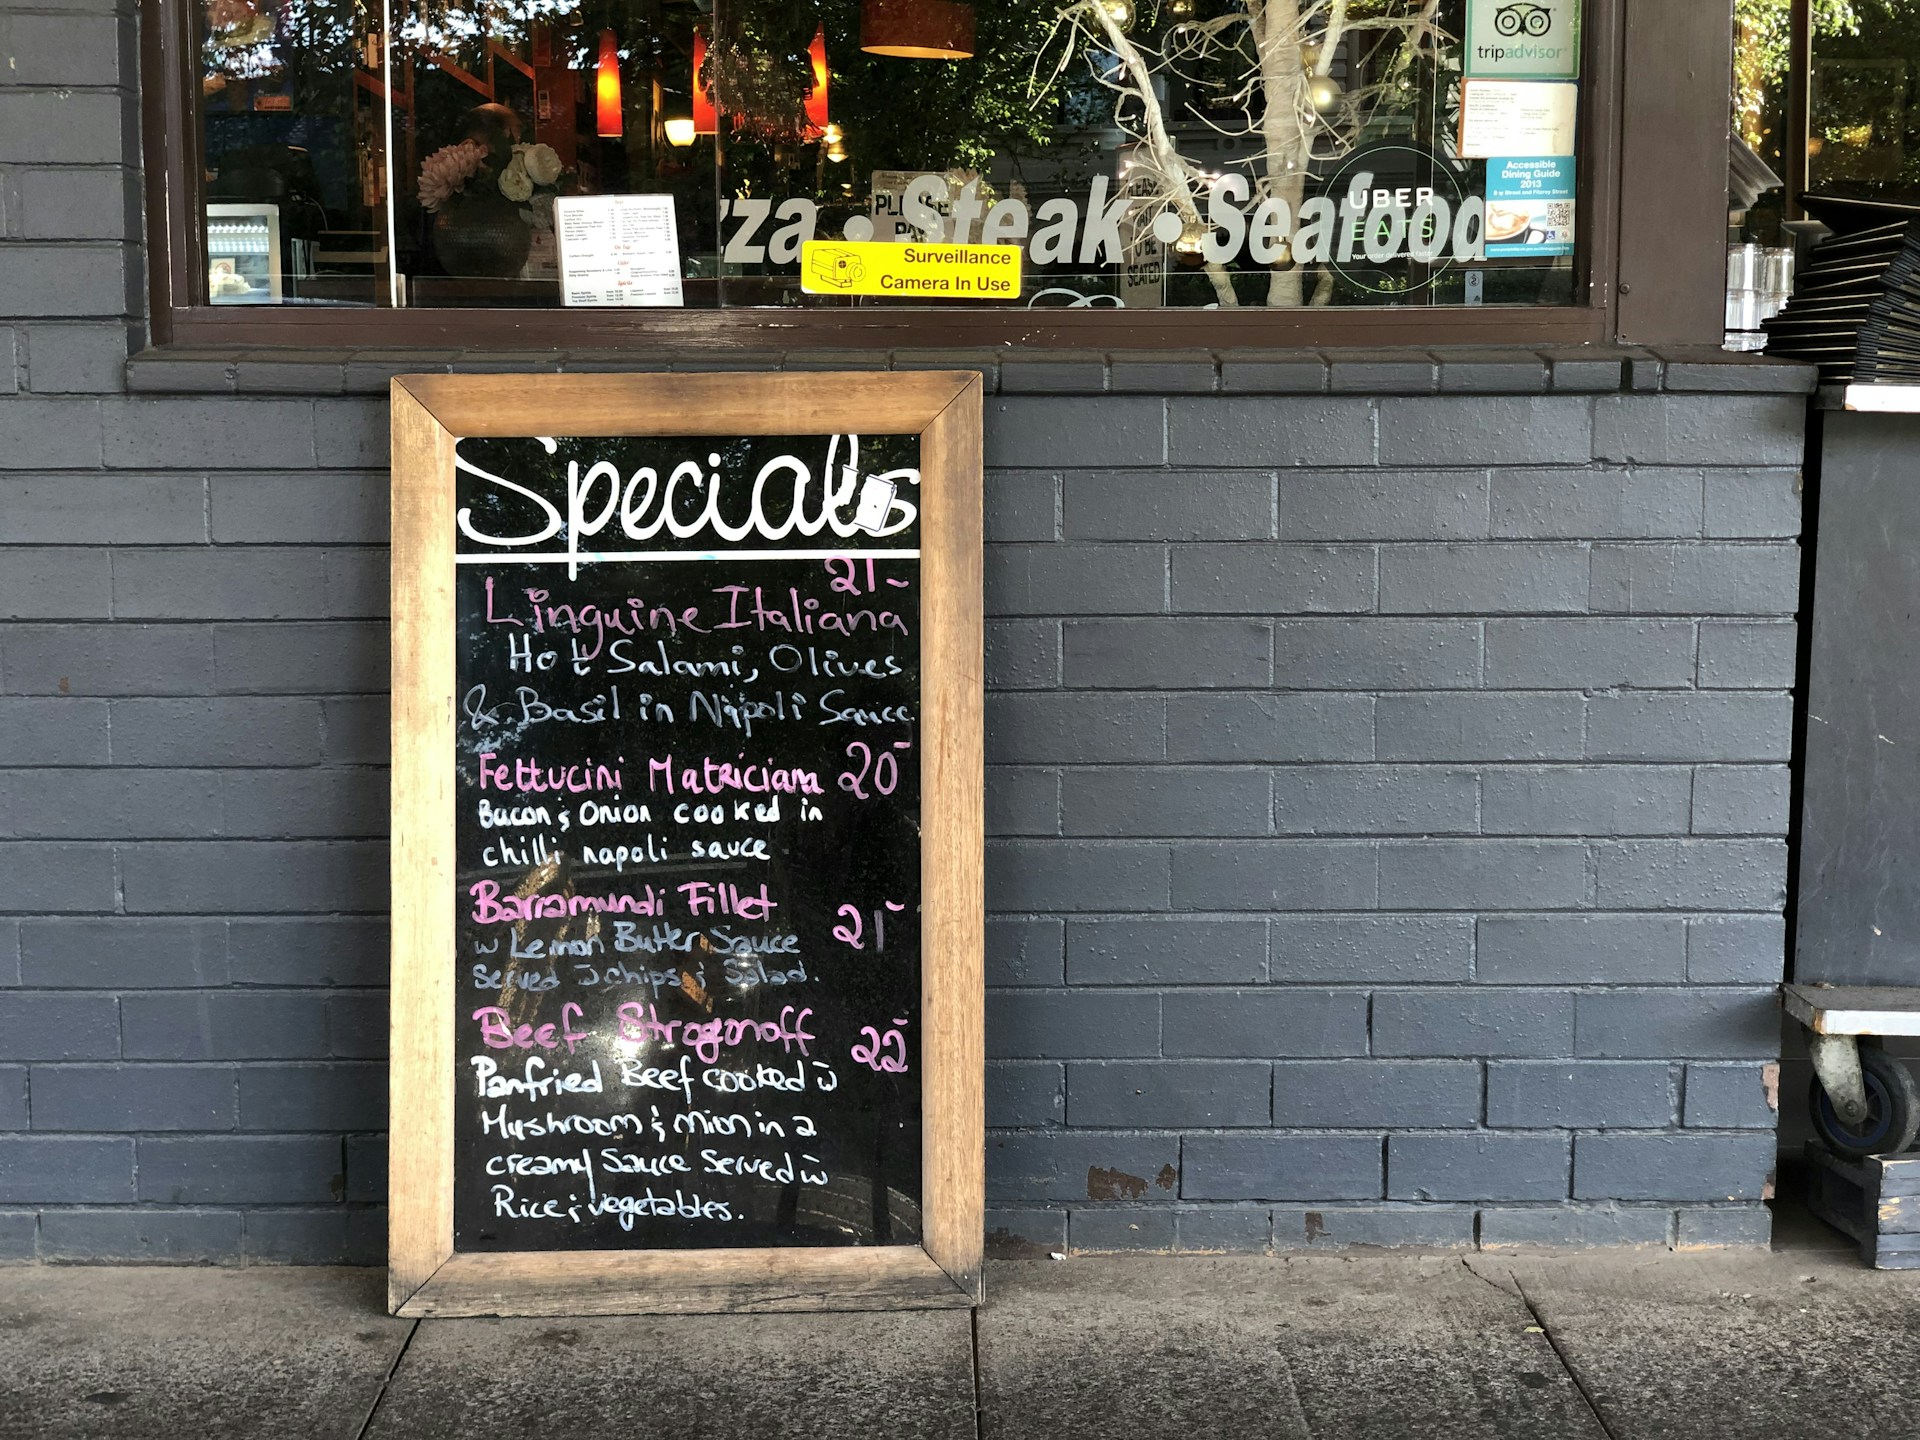 tripadvisor
Accessible
Dining Guide
2013
zza • Steak • Seafood
UBER
EATS
PLEASE
TO BE
SEATED
Surveillance
Camera In Use
Specials
21-
Linguine Italiana
Hot Salami, Olives
& Basil in Napoli Sauce
Fettucini Matriciana 20-
Bacon & Onion cooked in
chilli napoli sauce
Barramundi Fillet
21-
w Lemon Butter Sauce
Served w chips & Salad.
Beef Strogonoff
22-
Panfried Beef cooked w
Mushroom & onion in a
creamy Sauce Served w
Rice & vegetables.